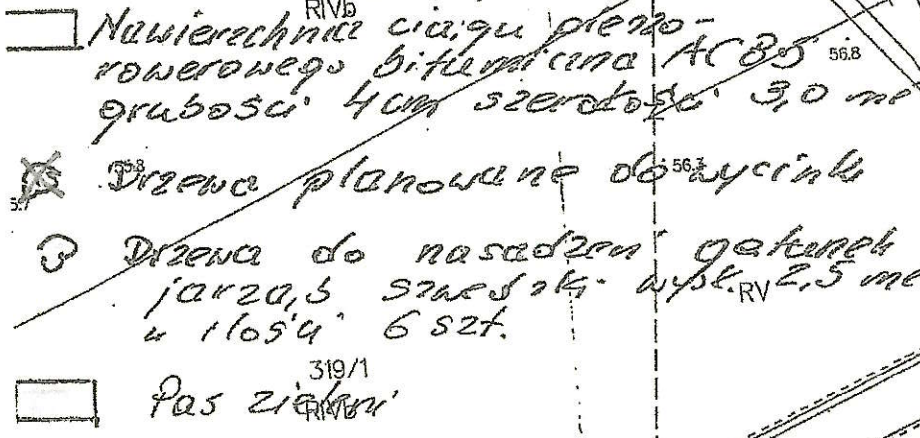 RIVb
Nawierzchnia ciągu pieszo-
rowerowego bitumiczna AC 85 56.8
grubości 4cm szerokości 3,0 m
Drzewa planowane do wycinki 56.3
Drzewa do nasadzeń gatunek
jarząb szwedzki wys. 2,5 m
RV
w ilości 6 szt.
319/1
Pas zieleni
RIVb